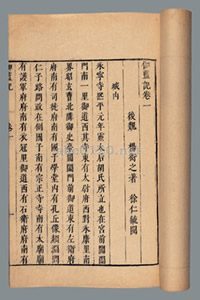 伽藍記卷一
後魏 楊衒之著 徐仁毓閱
城内
永寧寺熙平元年靈太后胡氏所立也在宮前閶闔
門南一里御道西其寺東有太尉府西對永康里南
界昭玄曹北隣御史臺閶闔門前御道東有左衛府
府南有司徒府南有國子學堂内有孔丘像顏淵問
仁子路問政在側國子南有宗正寺寺南有太廟廟
南有護軍府府南有衣冠里御道西有右衛府府南
伽藍記 卷一